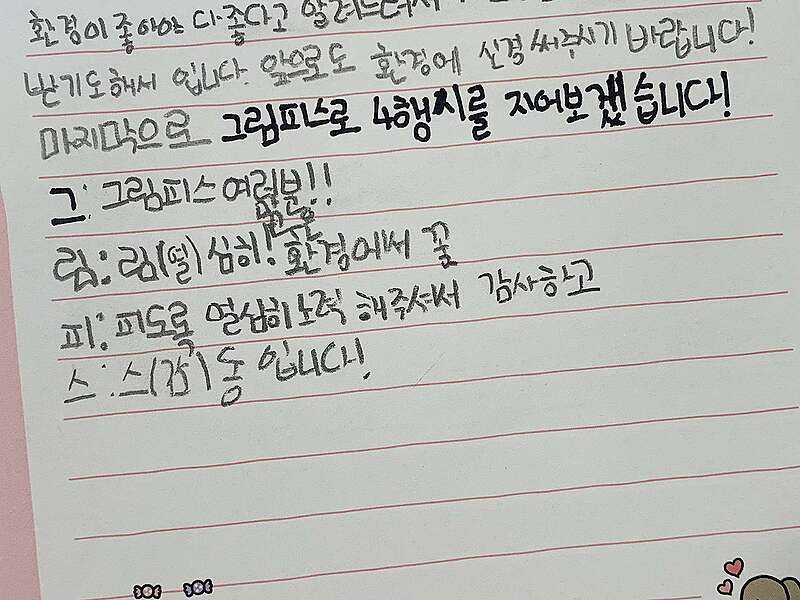 환경이 좋아야 다 좋다고 알려드려서
받기도 해서 입니다. 앞으로도 환경에 신경써주시기 바랍니다!
마지막으로 그림피스로 4행시를 지어보겠습니다!
그: 그림피스 여러분!!
림: 림(열)심히! 환경에서 꽃
피: 피도록 열심히 노력 해주셔서 감사하고
스: 스(감)동 입니다!